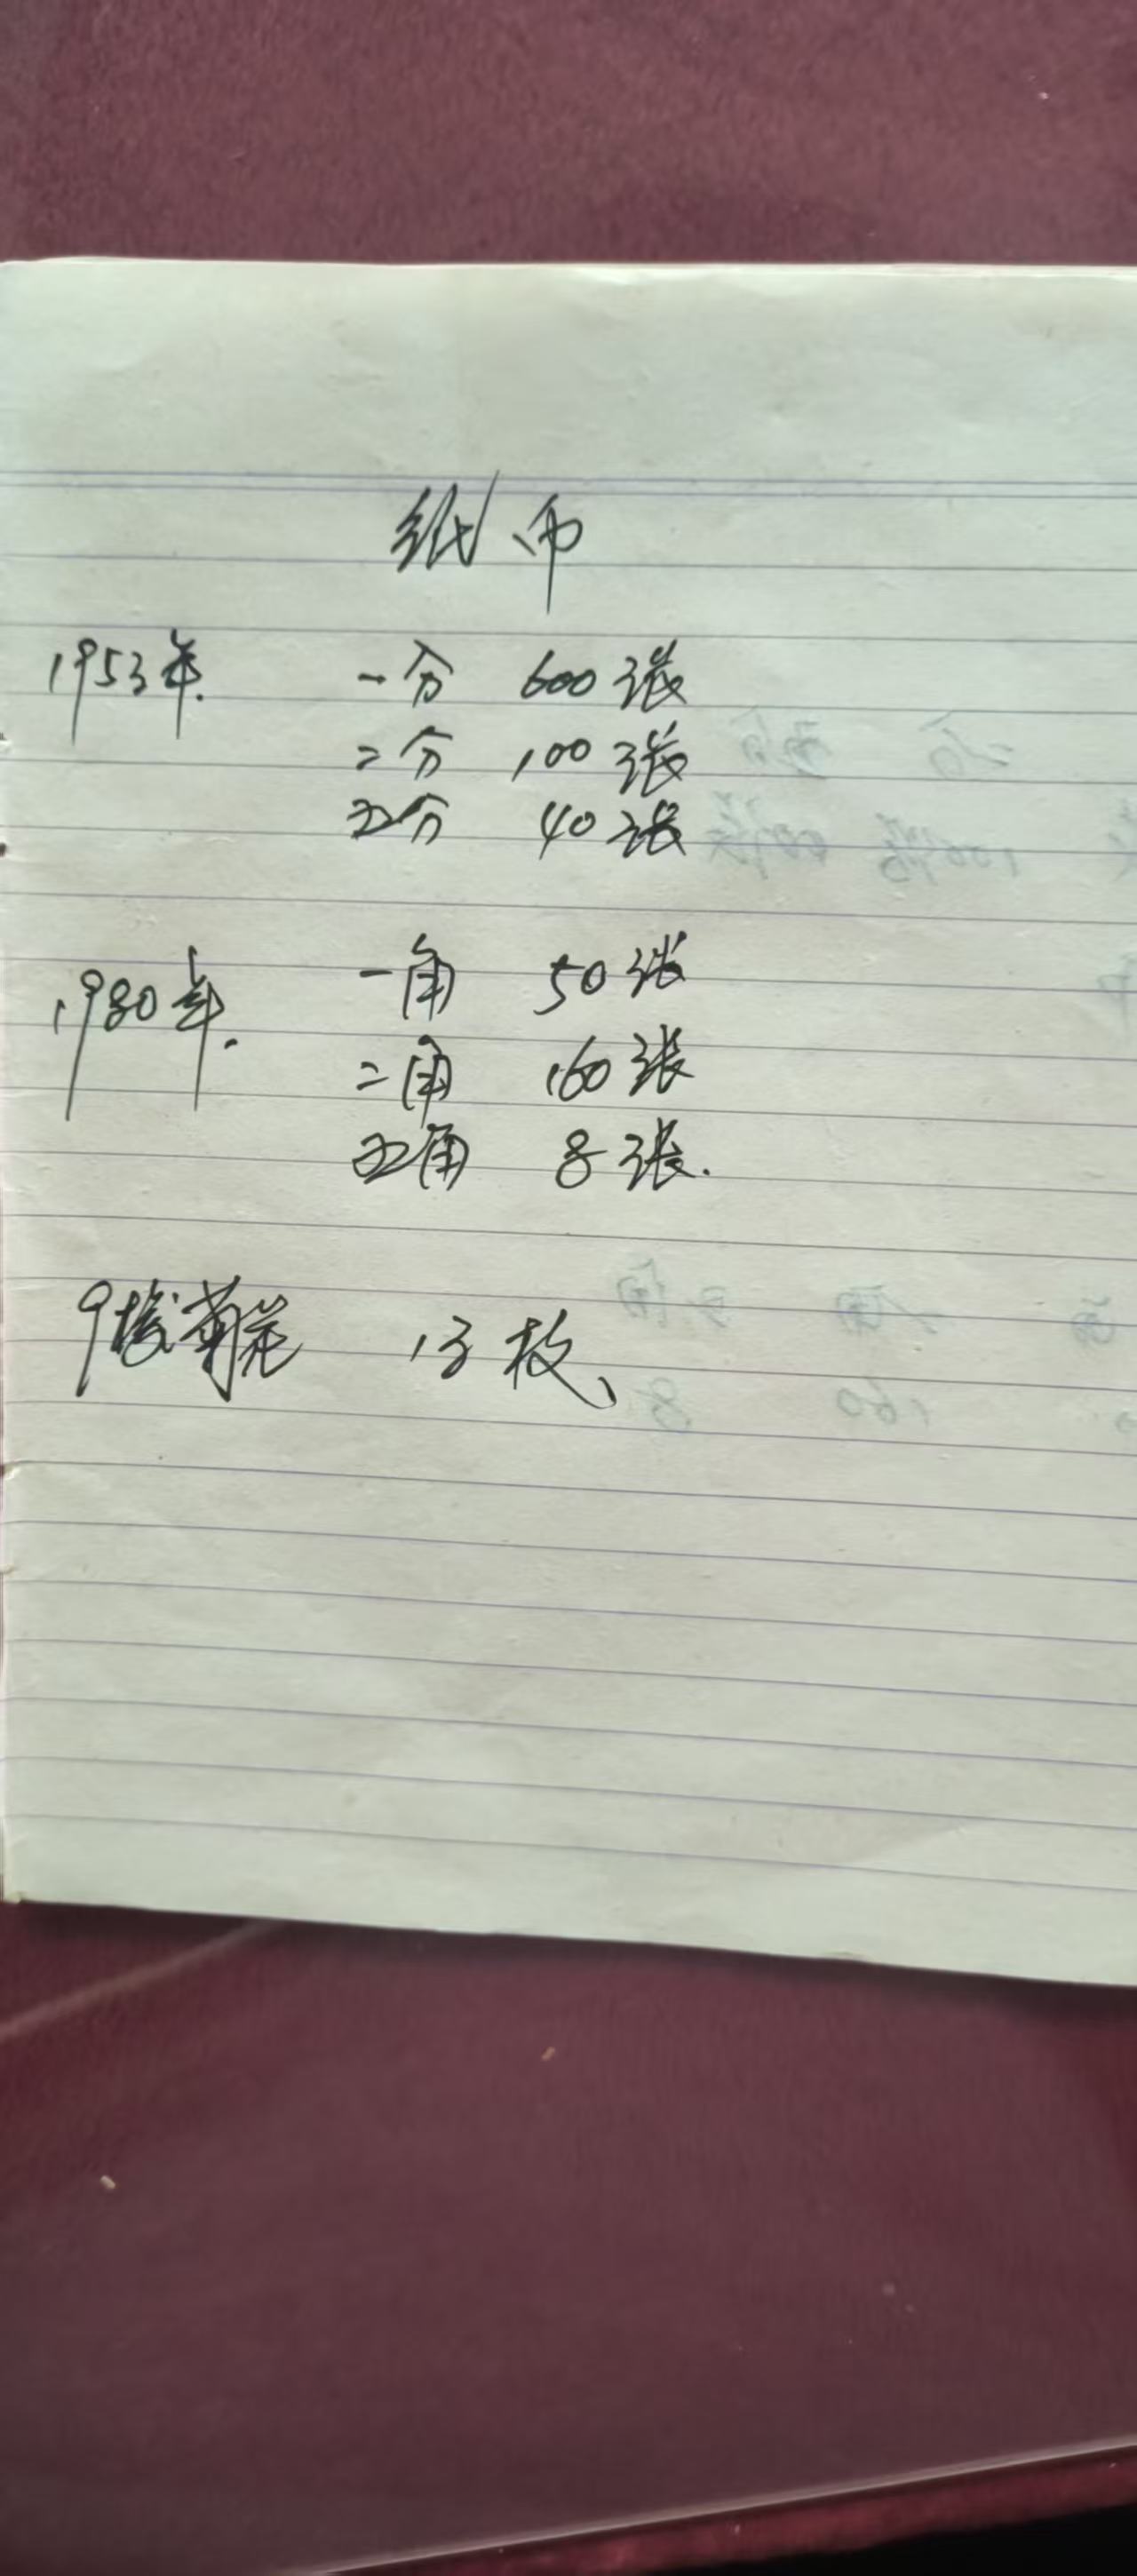 纸币
1953年. 一分 600张
二分 100张
五分 40张
1980年. 一角 50张
二角 160张
五角 8张.
菊花 13枚、